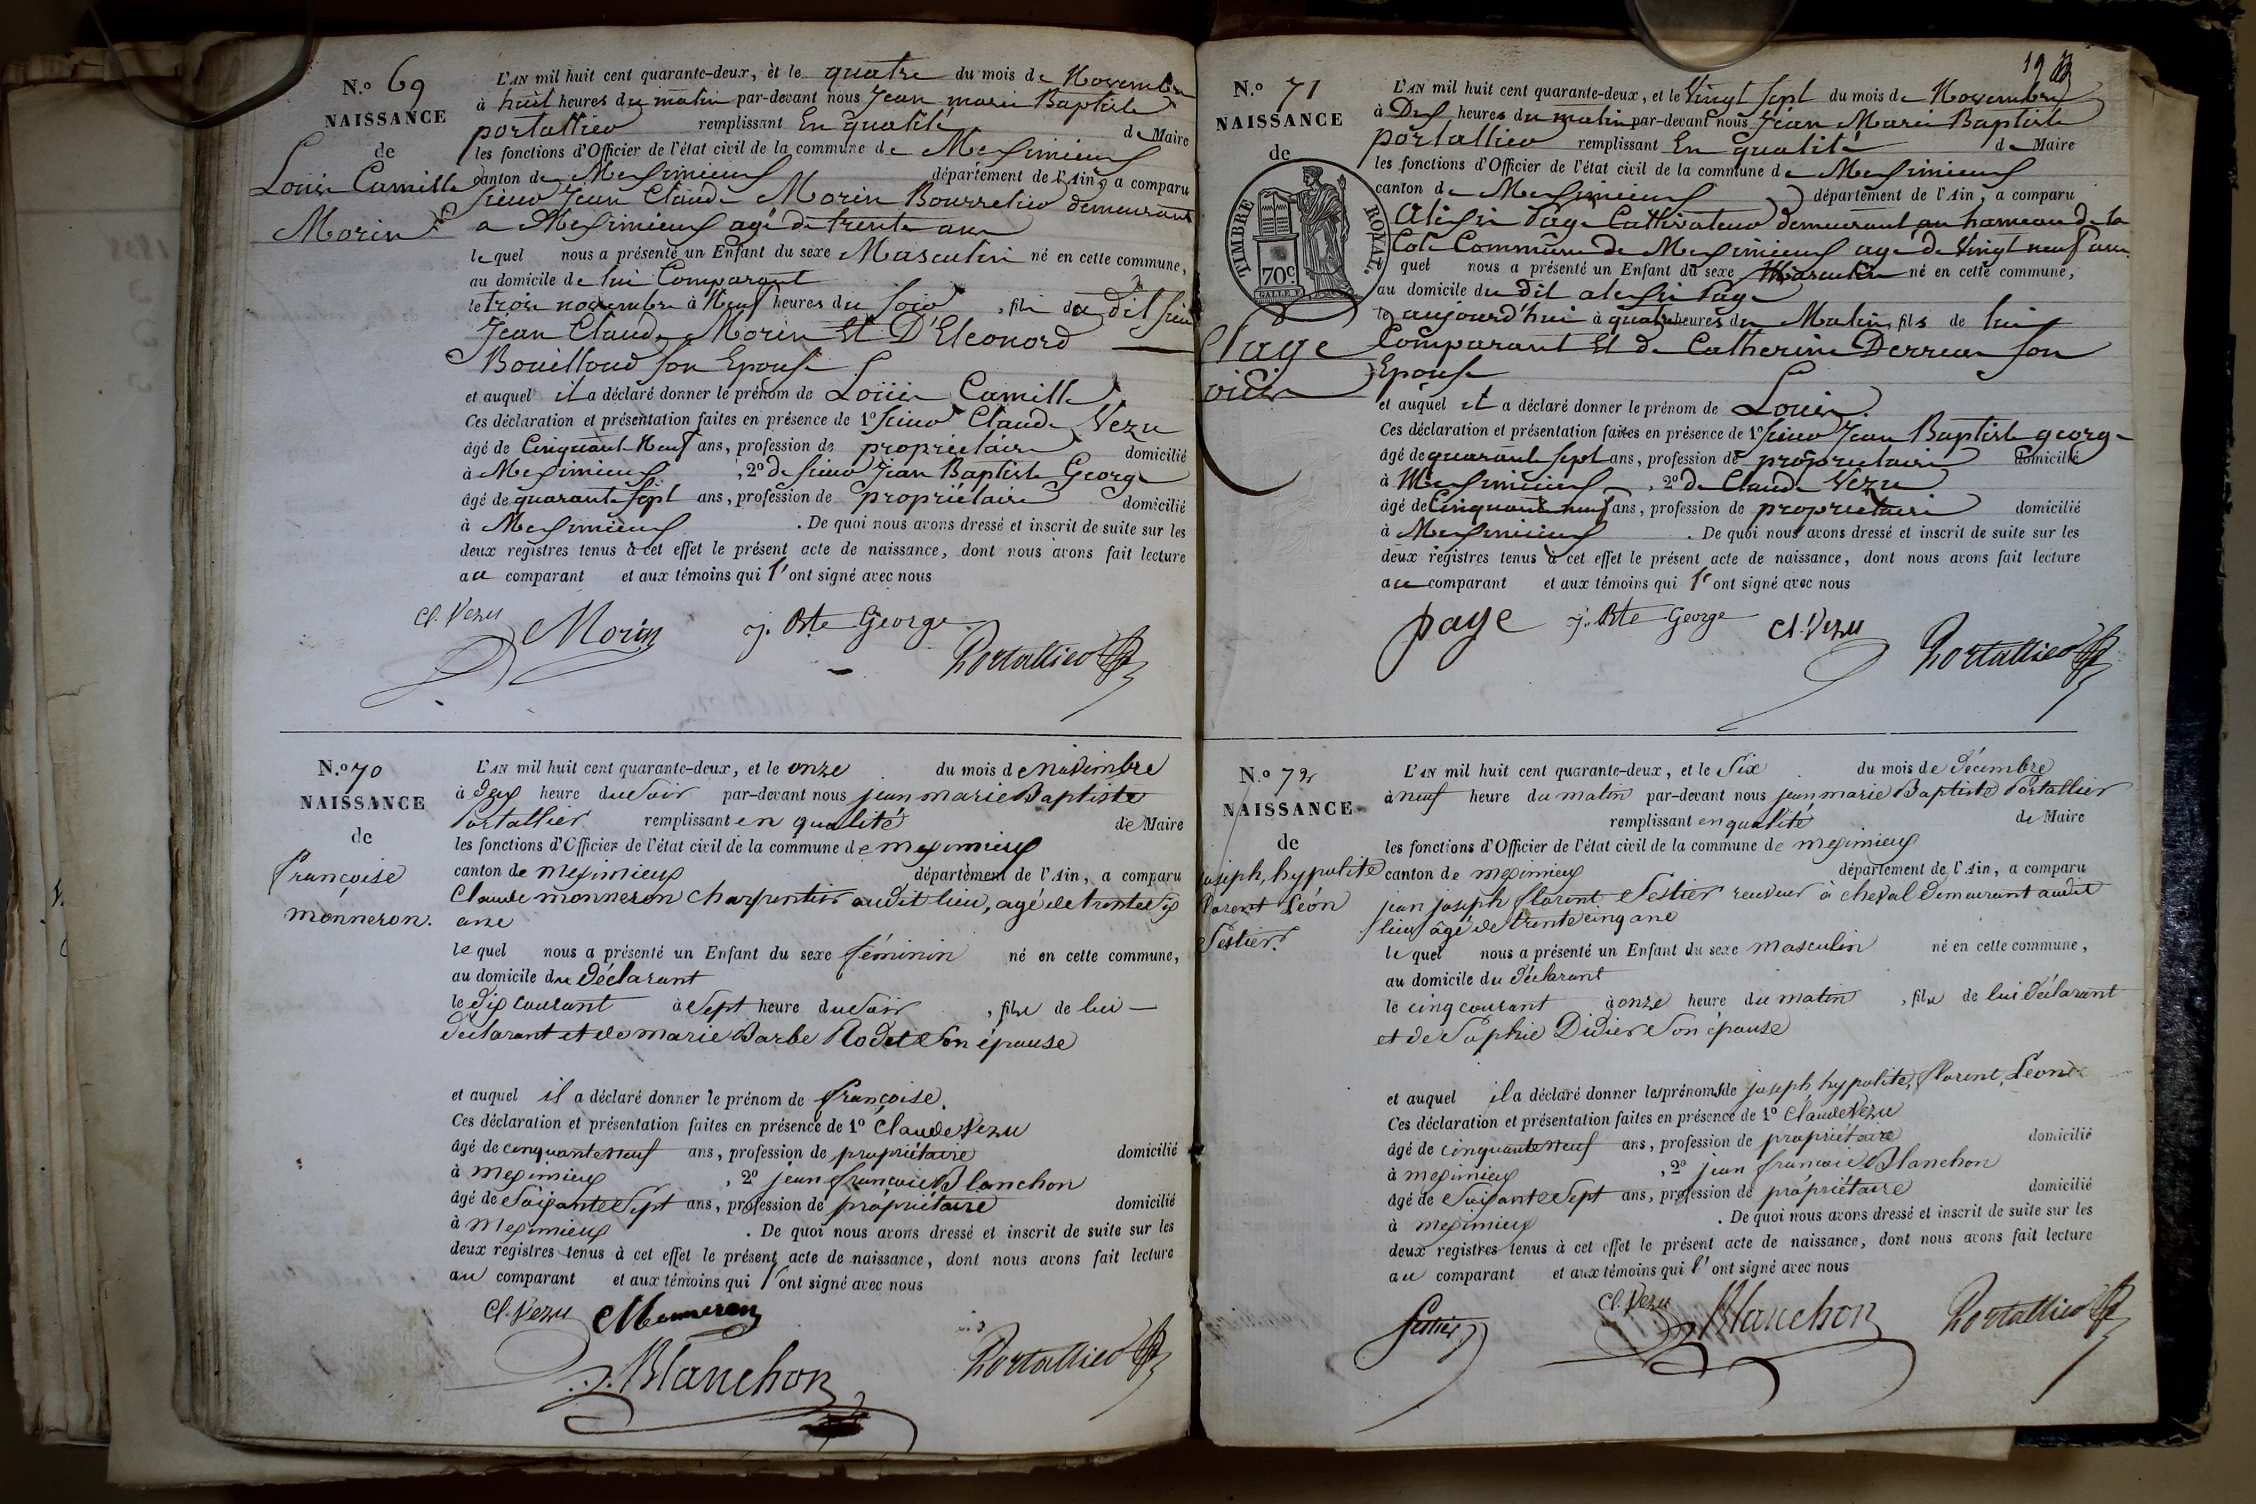 N.o 69
NAISSANCE
de
Louis Camille
Morin
L'AN mil huit cent quarante-deux, et le quatre du mois de Novembre
à huit heures du matin par-devant nous Jean marie Baptiste
portallier remplissant En qualité de Maire
les fonctions d'Officier de l'état civil de la commune de Meximieux
canton de Meximieux département de l'Ain, a comparu
sieur Jean Claude Morin Bourrelier demeurant
a Meximieux agé de trente ans
lequel nous a présenté un Enfant du sexe Masculin né en cette commune,
au domicile de lui Comparant
le trois novembre à Neuf heures du soir, fils du dit sieur
Jean Claude Morin Et D'Eleonord
Bouilloud son Epouse
et auquel il a déclaré donner le prénom de Louis Camille
Ces déclaration et présentation faites en présence de 1º sieur Claude Vezu
âgé de Cinquante Neuf ans, profession de propriétaire domicilié
à Meximieux, 2º de sieur Jean Baptiste George
âgé de quarante sept ans, profession de propriétaire domicilié
à Meximieux. De quoi nous avons dressé et inscrit de suite sur les
deux registres tenus à cet effet le présent acte de naissance, dont nous avons fait lecture
au comparant et aux témoins qui l'ont signé avec nous
Cl. Vezu Morin j. Bte George Portallier
N.o 70
NAISSANCE
de
françoise
monneron.
L'AN mil huit cent quarante-deux, et le onze du mois de novembre
à deux heure du soir par-devant nous jean marie Baptiste
Portallier remplissant en qualité de Maire
les fonctions d'Officier de l'état civil de la commune de meximieux
canton de meximieux département de l'Ain, a comparu
Claude monneron charpentier audit lieu, agé de trente six
ans
lequel nous a présenté un Enfant du sexe féminin né en cette commune,
au domicile du déclarant
le dix courant à sept heure du soir, fille de lui
déclarant et de marie Barbe Rodet son épouse
et auquel il a déclaré donner le prénom de françoise.
Ces déclaration et présentation faites en présence de 1º Claude Vezu
âgé de cinquante neuf ans, profession de propriétaire domicilié
à meximieux, 2º jean françois Blanchon
âgé de soixante sept ans, profession de propriétaire domicilié
à meximieux. De quoi nous avons dressé et inscrit de suite sur les
deux registres tenus à cet effet le présent acte de naissance, dont nous avons fait lecture
au comparant et aux témoins qui l'ont signé avec nous
Cl. Vezu Monneron
Blanchon Portallier
19
N.o 71
NAISSANCE
de
TIMBRE ROYAL.
70c.
Page
L'AN mil huit cent quarante-deux, et le Vingt sept du mois de Novembre
à Dix heures du matin par-devant nous Jean Marie Baptiste
portallier remplissant En qualité de Maire
les fonctions d'Officier de l'état civil de la commune de Meximieux
canton de Meximieux département de l'Ain, a comparu
Page Cultivateur demeurant au hameau de la
Cote Commune de Meximieux agé de Vingt neuf ans
quel nous a présenté un Enfant du sexe Masculin né en cette commune,
au domicile du dit Page
le aujourd'hui à quatre heures du Matin, fils de lui
Comparant Et de Catherine Derreau son
Epouse
et auquel il a déclaré donner le prénom de Louis.
Ces déclaration et présentation faites en présence de 1º sieur Jean Baptiste george
âgé de quarante sept ans, profession de propriétaire domicilié
à Meximieux, 2º de Claude Vezu
âgé de Cinquante neuf ans, profession de propriétaire domicilié
à Meximieux. De quoi nous avons dressé et inscrit de suite sur les
deux registres tenus à cet effet le présent acte de naissance, dont nous avons fait lecture
au comparant et aux témoins qui l'ont signé avec nous
page j. Bte George Cl. Vezu Portallier
N.o 72
NAISSANCE
de
joseph, hypolite
florent Léon
Sestier.
L'AN mil huit cent quarante-deux, et le six du mois de décembre
à neuf heure du matin par-devant nous jean marie Baptiste Portallier
remplissant en qualité de Maire
les fonctions d'Officier de l'état civil de la commune de meximieux
canton de meximieux département de l'Ain, a comparu
jean joseph florent Sestier receveur à cheval demeurant audit
lieu âgé de trente cinq ans
lequel nous a présenté un Enfant du sexe masculin né en cette commune,
au domicile du déclarant
le cinq courant à onze heure du matin, fils de lui déclarant
et de Sophie Didier son épouse
et auquel il a déclaré donner les prénoms de joseph hypolite, florent, Léon
Ces déclaration et présentation faites en présence de 1º Claude Vezu
âgé de cinquante neuf ans, profession de propriétaire domicilié
à meximieux, 2º jean françois Blanchon
âgé de soixante sept ans, profession de propriétaire domicilié
à meximieux. De quoi nous avons dressé et inscrit de suite sur les
deux registres tenus à cet effet le présent acte de naissance, dont nous avons fait lecture
au comparant et aux témoins qui l'ont signé avec nous
Sestier Cl. Vezu Blanchon Portallier